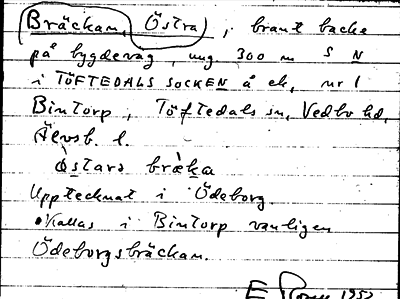 Bräckan, Östra, brant backe
på bygdeväg, ung 300 m S N
i TÖFTEDALS SOCKEN å ek, nr 1
Bintorp, Töftedals sn, Vedbo hd,
Älvsb. l.
östara bræka
Upptecknat i Ödeborg.
Kallas i Bintorp vanligen
Ödeborgsbräckan.
E 1952